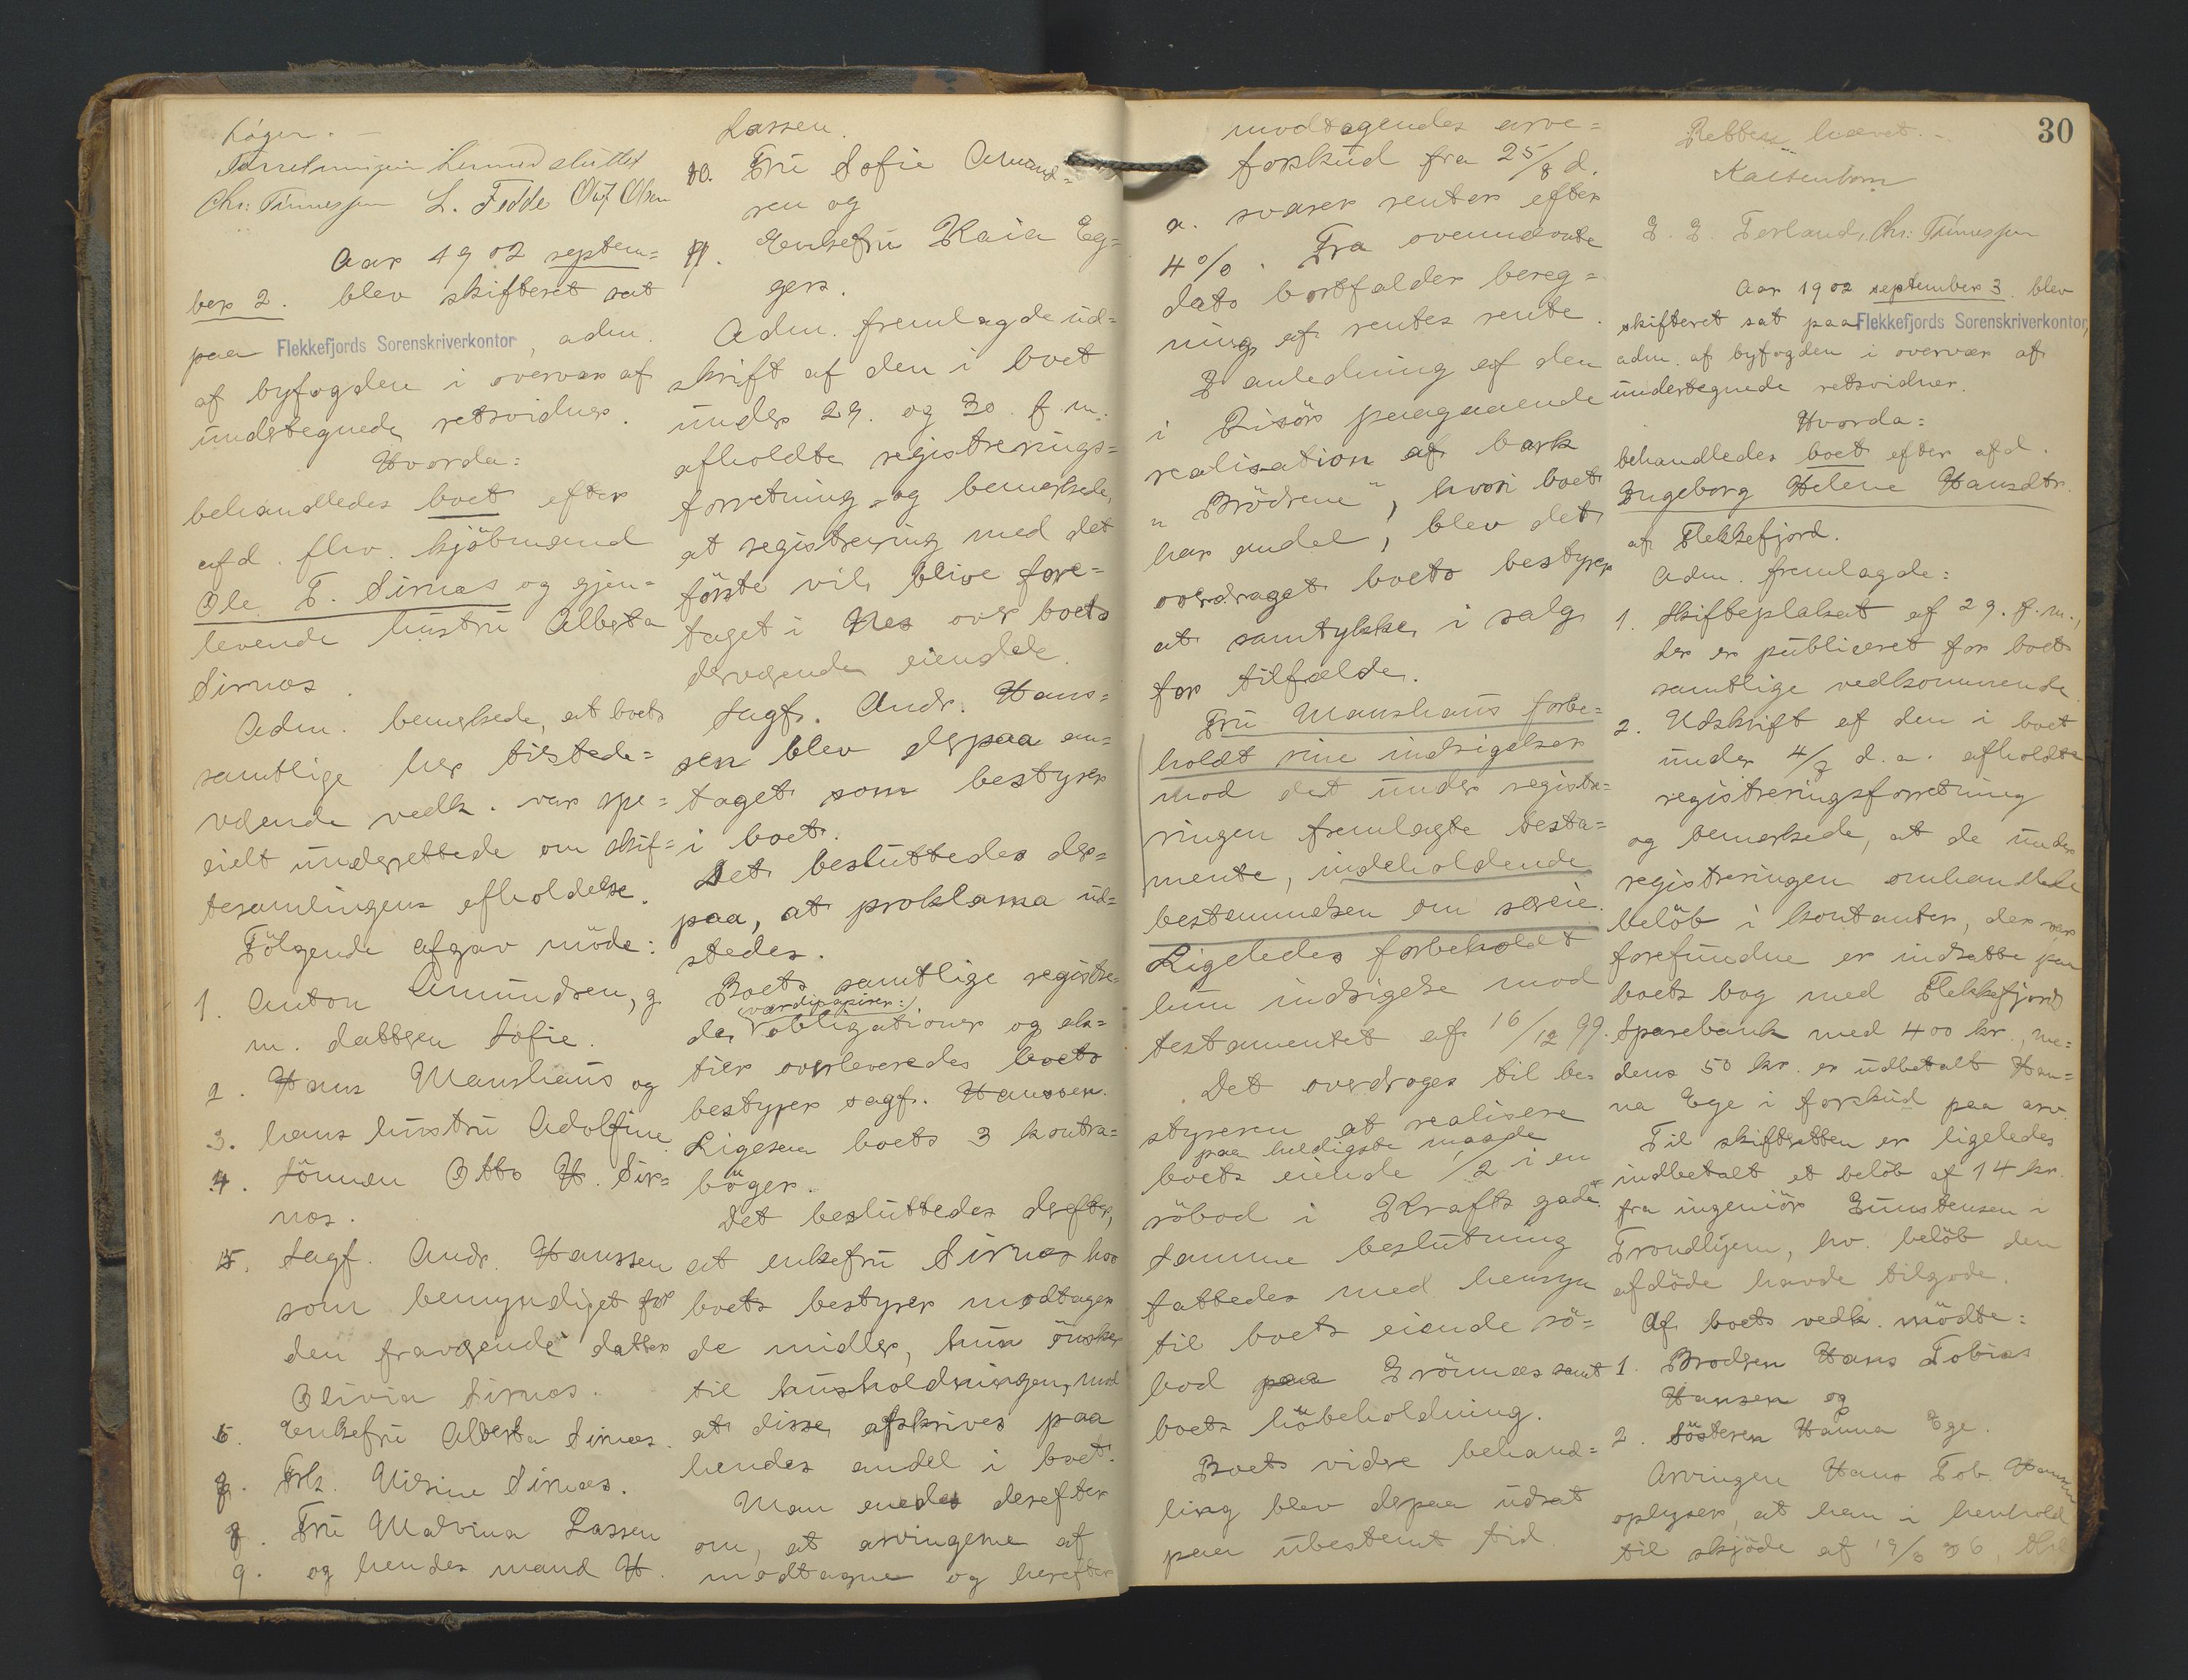 bøger. —
Forretningen hermed sluttet
Chr: Tinnessen L. Fedde Olaf Olsen
Aar 1902 septem=
ber 2. blev skifteret sat
paa Flekkefjords Sorenskriverkontor, adm.
af byfogden i overvær af
undertegnede retsvidner.
Hvorda:
behandledes boet efter
afd. fhv. kjöbmand
Ole T. Sirnæs og gjen=
levende hustru Alberta
Sirnæs.
Adm. bemerkede, at boets
samtlige her tilstede=
værende vedk. var spe=
cielt underrettede om skif=
tesamlingens afholdelse.
Fölgende afgav möde:
1. Anton Amundsen, g.
m. datteren Sofie.
2. Hans Manshaus og
3. hans hustru Adolfine
4. Sönnen Otto H. Sir=
næs.
5. Sagf. Andr. Hanssen
som bemyndiget for
den fraværende datter
Olivia Sirnæs.
6. Enkefru Alberta Sirnæs.
7. Frk. Sirnæs.
8. Fru Malvina Lassen
9. og hendes mand H.
Lassen.
10. Fru Sofie Amund=
sen og
11. Enkefru Kaia Eg=
gers.
Adm. fremlagde ud=
skrift af den i boet
under 29. og 30. f. m.
afholdte registrerings=
forretning og bemerkede,
at registrering med det
förste vil blive fore=
taget i Nes over boets
derværende eiendele.
Sagf. Andr. Hans=
sen blev derpaa an=
taget som bestyrer
i boet.
Det besluttedes der=
paa, at proklama ud=
stedes.
Boets samtlige registre=
værdipapirer:/
de obligationer og ak=
tier overleveredes boets
bestyrer sagf. Hanssen.
Ligesaa boets 3 kontra=
böger.
Det besluttedes derefter,
at enkefru Sirnæs hos
boets bestyrer modtager
de midler, hun önsker
til husholdningen, mod
at disse afskrives paa
hendes andel i boet.
Man enedes derefter
om, at arvingerne af
modtagne og herefter
modtagendes arve=
forskud fra 25/8 d.
a. svarer renter efter
4%. Fra ovennævnte
dato bortfalder bereg=
ning af rentes rente.
I anledning af den
i Risör paagaaende
realisation af bark
"Brödrene", hvori boet
har andel, blev det
overdraget boets bestyrer
at samtykke i salg
for tilfælde.
Fru Manshaus forbe=
holdt sine indsigelser
mod det under registre=
ringen fremlagte testa=
mente, indeholdende
bestemmelsen om særeie.
Ligeledes forbeholdt
hun indsigelse mod
testamentet af 16/12 99.
Det overdroges til be=
styreren at realisere
paa heldigste maade
boets eiende 1/2 i en
söbod i Krafts gade.
Samme beslutning
fattedes med hensyn
til boets eiende sö=
bod paa Grönnes samt
boets höbeholdning.
Boets videre behand=
ling blev derpaa udsat
paa ubestemt tid.
30
Retten hævet. -
Kaltenborn
T. Terland, Chr: Tinnessen
Aar 1902 september 3. blev
skifteret sat paa Flekkefjords Sorenskriverkontor,
adm. af byfogden i overvær af
undertegnede retsvidner.
Hvorda:
behandledes boet efter afd.
Ingeborg Helene Hansdtr.
af Flekkefjord.
Adm. fremlagde:
1. Skifteplakat af 29. f. m.,
der er publiceret for boets
samtlige vedkommende.
2. Udskrift af den i boet
under 4/7 d. a. afholdte
registreringsforretning
og bemerkede, at de under
registreringen omhandlede
belöb i kontanter, der var
forefundne er indsatte paa
boets bog med Flekkefjords
Sparebank med 400 kr., me=
dens 50 kr. er udbetalt Han=
na Ege i forskud paa arv.
Til skifteretten er ligeledes
indbetalt et belöb af 14 kr.
fra ingeniör Gunstensen i
Trondhjem, hv. belöb den
afdöde havde tilgode.
Af boets vedk. mödte:
1. Broderen Hans Tobias
Hansen og
2. Södteren Hanna Ege.
Arvingen Hans Tob. Hansen
oplyser, at han i henhold
til skjöde af